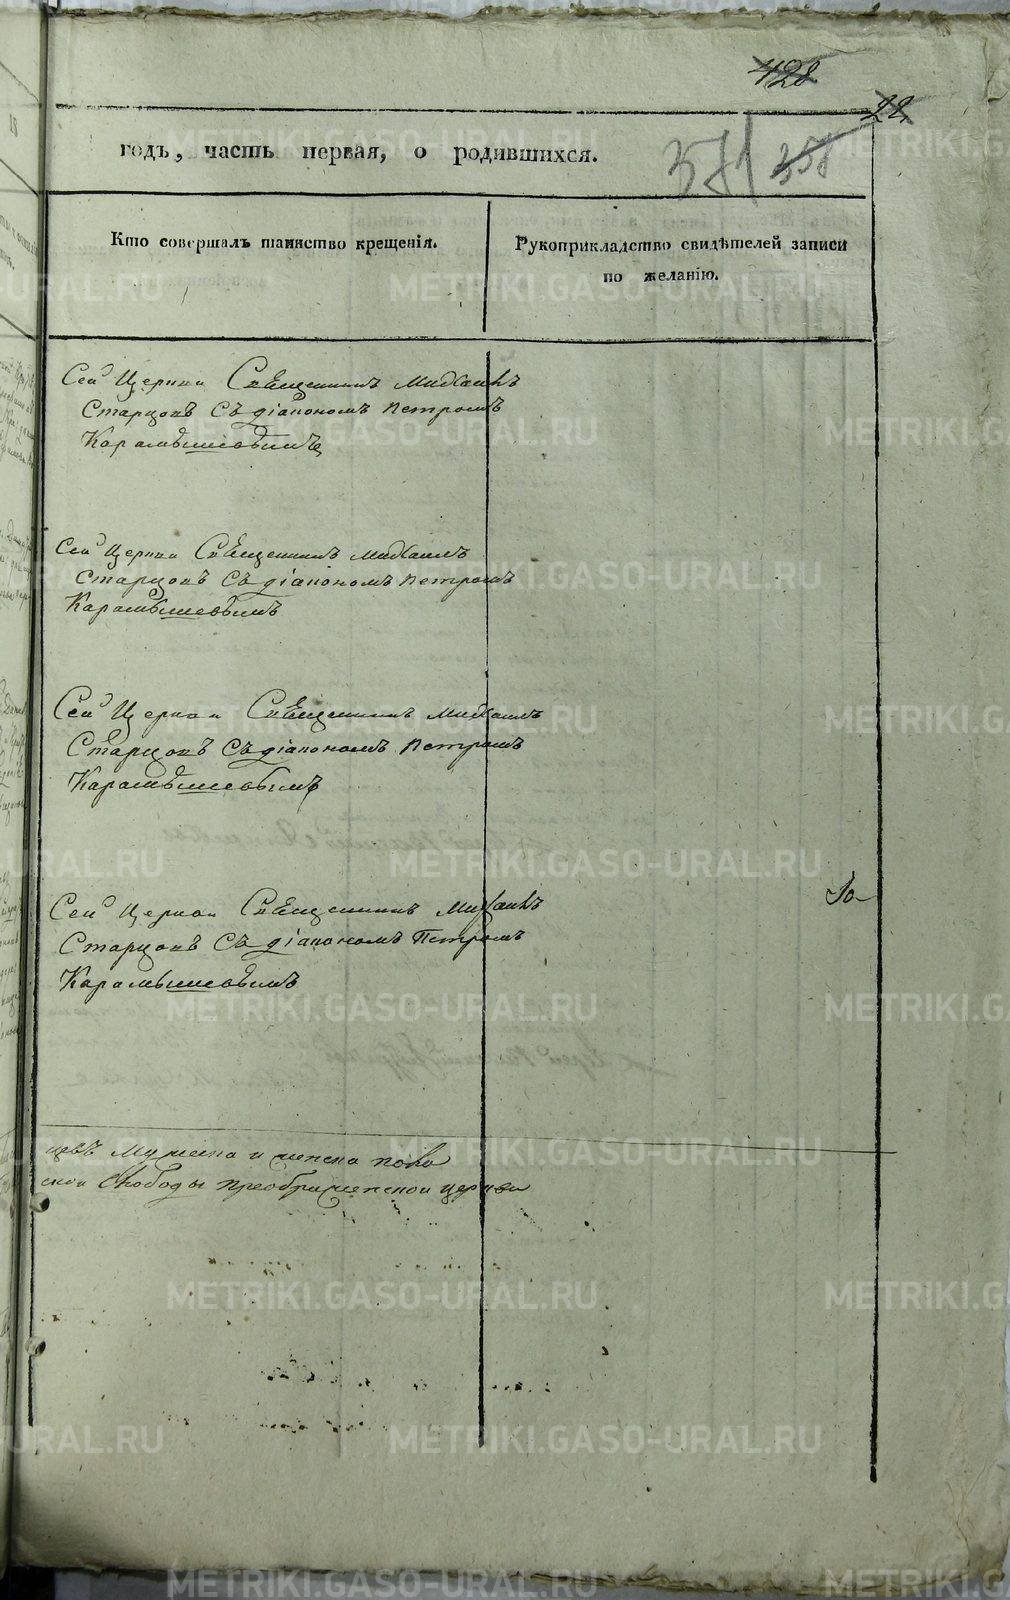 428
22
годъ, часть первая, о родившихся.
371 358
Кто совершалъ таинство крещенія.
Рукоприкладство свидѣтелей записи
по желанію.
Сей Церкви Священникъ Михаилъ
Старцовъ Съ діакономъ Петромъ
Карамышевымъ
Сей Церкви Священникъ Михаилъ
Старцовъ Съ діакономъ Петромъ
Карамышевымъ
Сей Церкви Священникъ Михаилъ
Старцовъ Съ діакономъ Петромъ
Карамышевымъ
Сей Церкви Священникъ Михаилъ
Старцовъ Съ діакономъ Петромъ
Карамышевымъ
цевъ Мужеска и женска пола
ской Слободы преображенской церкви
METRIKI.GASO-URAL.RU